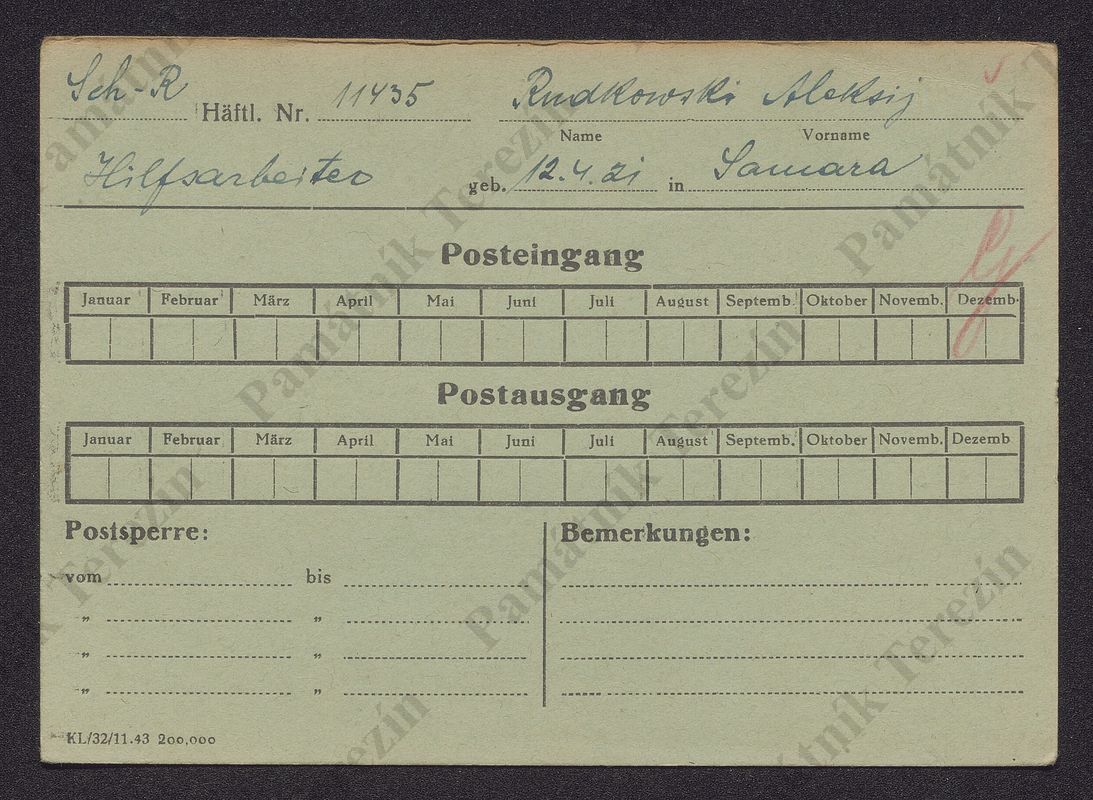 Sch-R Häftl. Nr. 11435 Rudkowski Aleksij
Name Vorname
Hilfsarbeiter geb. 12.4.21 in Samara
Posteingang
Januar Februar März April Mai Juni Juli August Septemb. Oktober Novemb. Dezemb.
Postausgang
Januar Februar März April Mai Juni Juli August Septemb. Oktober Novemb. Dezemb
Postsperre: Bemerkungen:
vom bis
„ „
„ „
„ „
KL/32/11.43 200,000
Památník Terezín
Památník Terezín
Památník Terezín
Památník Terezín